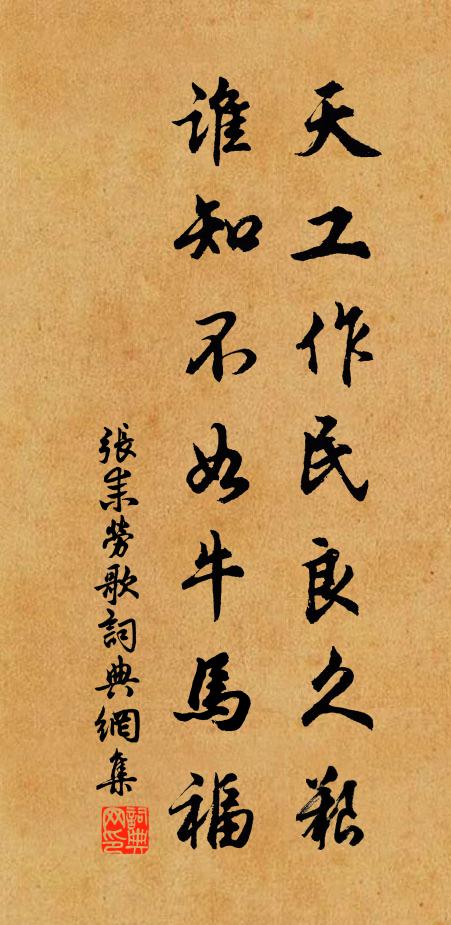 天工作民良久艱
誰知不如牛馬福
張耒勞歌詞典網集
詞典网印